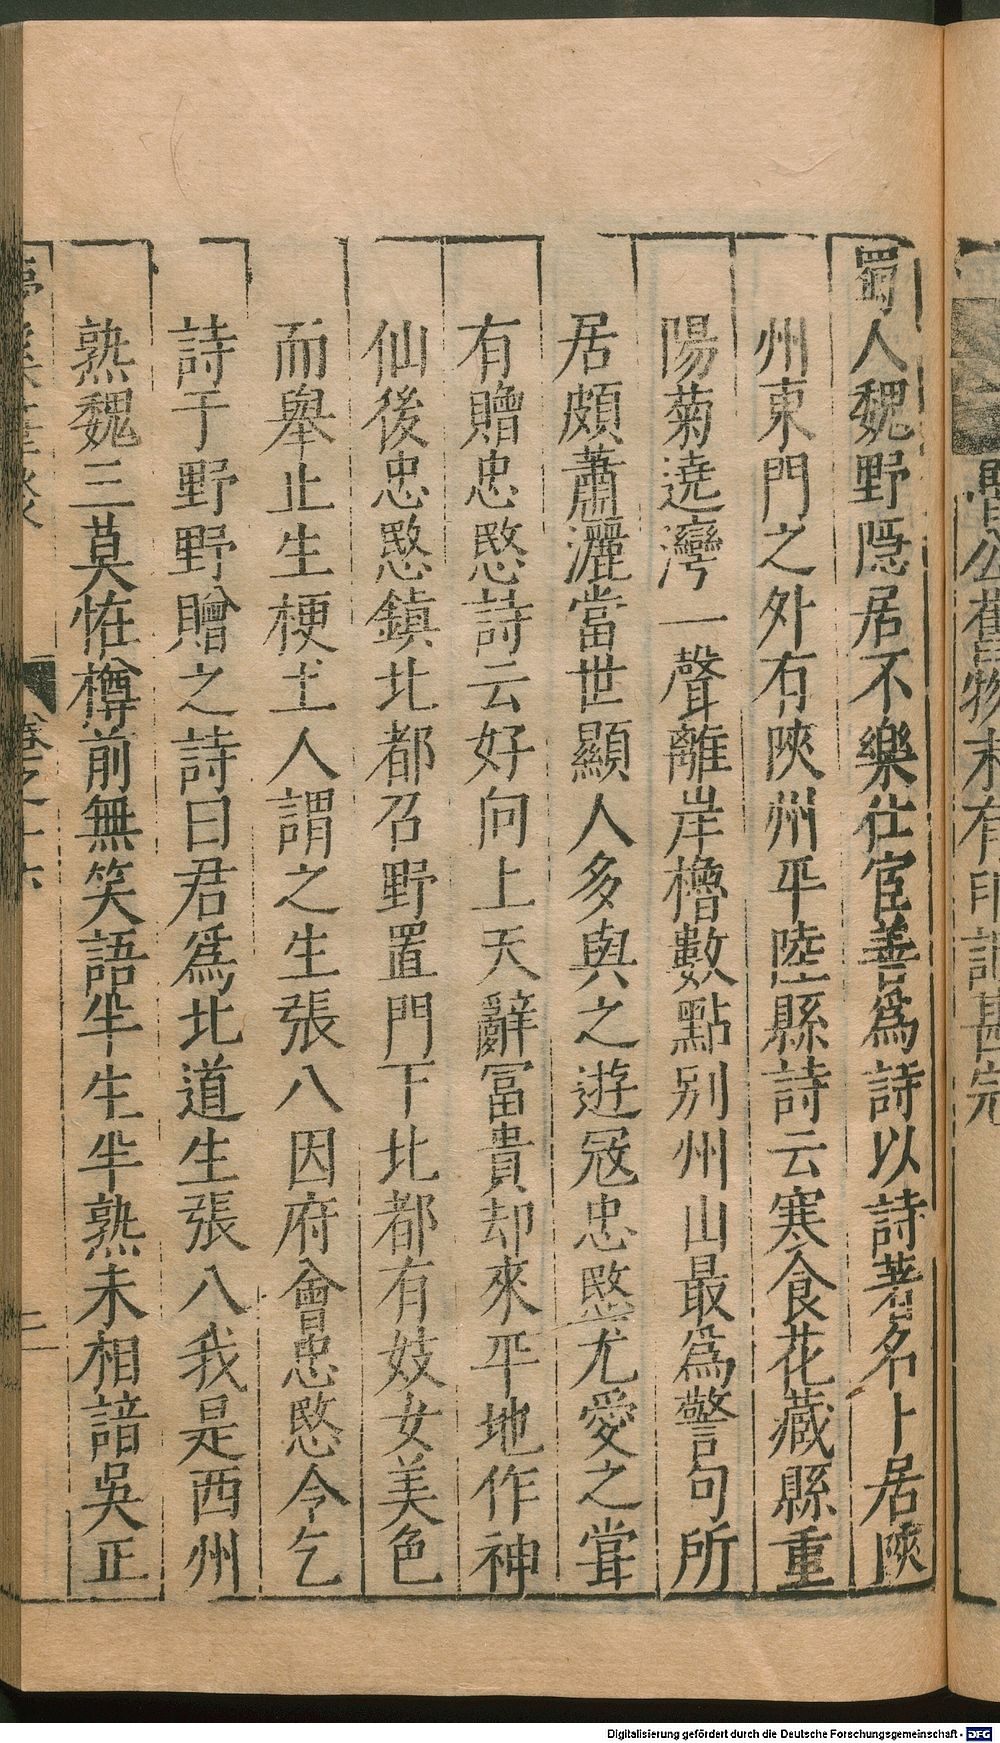 蜀人魏野隠居不樂仕宦善爲詩以詩著名卜居陝
州東門之外有陝州平陸縣詩云寒食花藏縣重
陽菊遶灣一聲離岸櫓數點别州山最爲警句所
居頗蕭灑當世顯人多與之遊寇忠愍尤愛之甞
有贈忠愍詩云好向上天辭冨貴却來平地作神
仙後忠愍鎮北都召野置門下北都有妓女美色
而舉止生梗土人謂之生張八因府會忠愍令乞
詩于野野贈之詩曰君爲北道生張八我是西州
熟魏三莫恠樽前無笑語半生半熟未相諳吳正
夢溪筆談
卷之十六
二
Digitalisierung gefördert durch die Deutsche Forschungsgemeinschaft - DFG